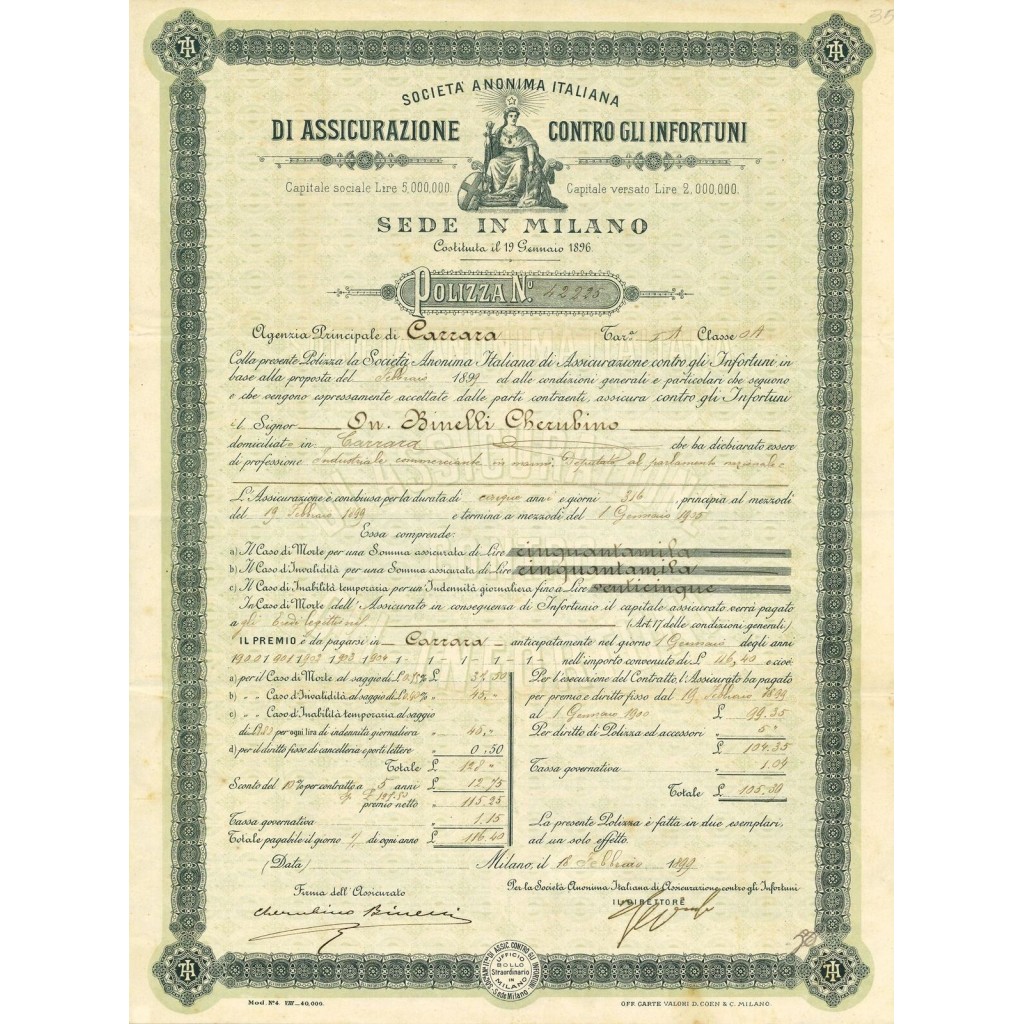 35
SOCIETA' ANONIMA ITALIANA
DI ASSICURAZIONE CONTRO GLI INFORTUNI
Capitale sociale Lire 5,000,000. Capitale versato Lire 2,000,000.
SEDE IN MILANO
Costituita il 19 Gennaio 1896
POLIZZA N.º 42225
Agenzia Principale di Carrara Tar.ª Classe
Colla presente Polizza la Società Anonima Italiana di Assicurazione contro gli Infortuni in
base alla proposta del Febbraio 1899 ed alle condizioni generali e particolari che seguono
e che vengono espressamente accettate dalle parti contraenti, assicura contro gli Infortuni
il Signor On. Binelli Cherubino
domiciliato in Carrara che ha dichiarato essere
di professione Industriale commerciante in marmi, Deputato al parlamento nazionale
L'Assicurazione è conchiusa per la durata di cinque anni e giorni 316, principia al mezzodì
del 19 Febbraio 1899 e termina a mezzodì del 1 Gennaio 1905
Essa comprende:
a) Il Caso di Morte per una Somma assicurata di Lire cinquantamila
b) Il Caso d'Invalidità per una Somma assicurata di Lire cinquantamila
c) Il Caso di Inabilità temporaria per un'Indennità giornaliera fino a Lire venticinque
In Caso di Morte dell'Assicurato in conseguenza di Infortunio il capitale assicurato verrà pagato
a gli Eredi legittimi (Art. 17 delle condizioni generali)
IL PREMIO è da pagarsi in Carrara anticipatamente nel giorno 1 Gennaio degli anni
1900 1901 1902 1903 1904 1- 1- 1- 1- 1- 1 nell'importo convenuto di £ 116,40 e cioè:
a) per il Caso di Morte al saggio di £ % £ 37.50
b) „ „ Caso d'Invalidità al saggio di £ % „ 45,„
c) „ „ Caso d'Inabilità temporaria al saggio
di per ogni lira di indennità giornaliera „ 45,„
d) per il diritto fisso di cancelleria e porti lettere „ 0,50
Totale £ 128 „
Sconto del 10% per contratto a 5 anni £ 12.75
premio netto „ 115.25
Tassa governativa „ 1.15
Totale pagabile il giorno 1 di ogni anno £ 116.40
Per l'esecuzione del Contratto, l'Assicurato ha pagato
per premio e diritto fisso dal 19 Febbraio 1899
al 1 Gennaio 1900 £ 99.35
Per diritto di Polizza ed accessori „ 5 „
£ 104.35
Tassa governativa „ 1.04
Totale £
La presente Polizza è fatta in due esemplari,
ad un solo effetto.
(Data) Milano, il 18 Febbraio 1899
Firma dell'Assicurato
Per la Società Anonima Italiana di Assicurazione contro gli Infortuni
IL DIRETTORE
Cherubino Binelli
SOC. AN. ITna DI ASSIC. CONTRO GLI INFORTUNI
UFFICIO
BOLLO
Straordinario
IN
MILANO
Sede Milano
Mod. Nº 4. VIII—40,000.
OFF. CARTE VALORI D. COEN & C. MILANO.